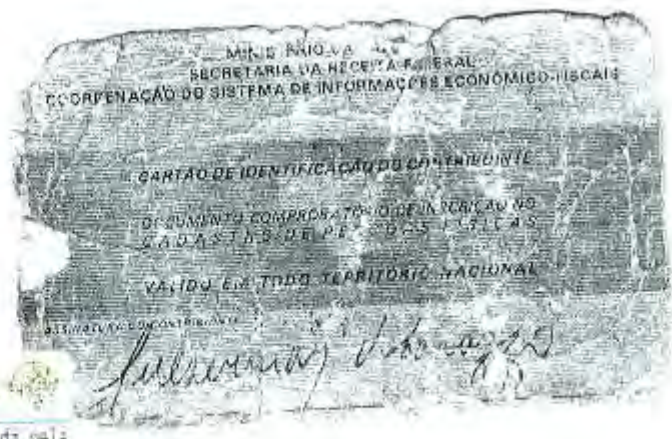 SECRETARIA DA RECEITA FEDERAL
COORDENAÇÃO DO SISTEMA DE INFORMAÇÕES ECONÔMICO-FISCAIS
CARTÃO DE IDENTIFICAÇÃO DO CONTRIBUINTE
DOCUMENTO COMPROBATÓRIO DE INSCRIÇÃO NO
CADASTRO DE PESSOAS FÍSICAS
VALIDO EM TODO TERRITÓRIO NACIONAL
ASSINATURA DO CONTRIBUINTE